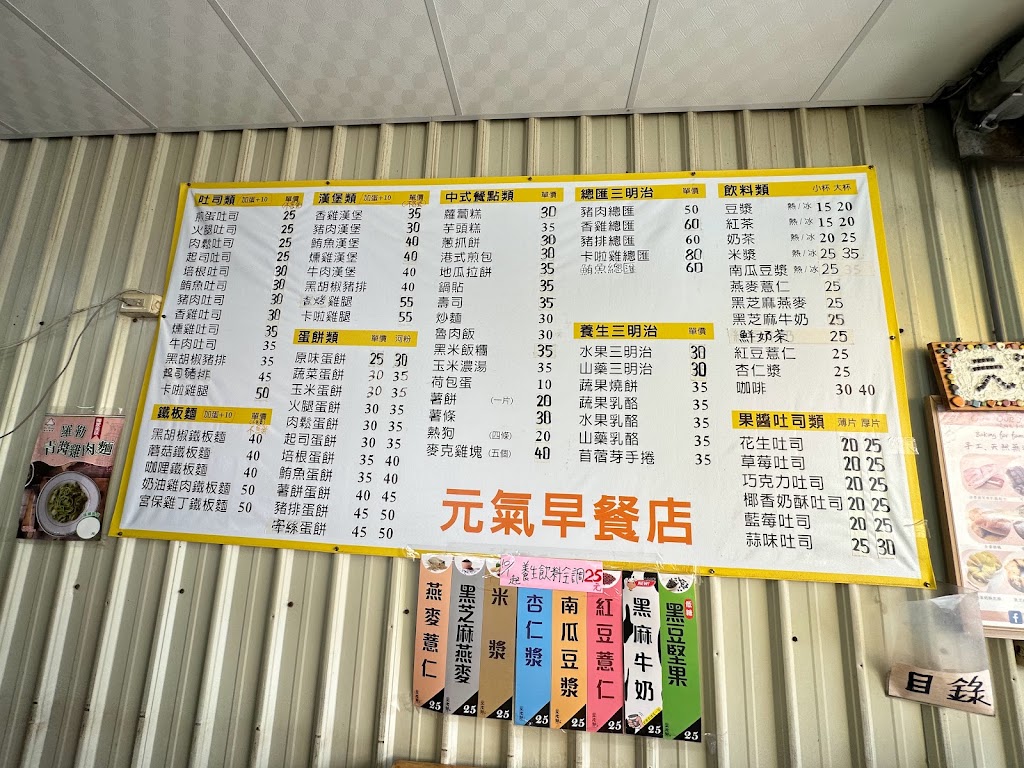 吐司類 加蛋+10 單價
煎蛋吐司 25
火腿吐司 25
肉鬆吐司 25
起司吐司 25
培根吐司 30
鮪魚吐司 30
豬肉吐司 30
香雞吐司 30
燻雞吐司 35
牛肉吐司 35
黑胡椒豬排 35
豬排 45
卡啦雞腿 50
鐵板麵 加蛋+10 單價
黑胡椒鐵板麵 40
蘑菇鐵板麵 40
咖哩鐵板麵 40
奶油雞肉鐵板麵 50
宮保雞丁鐵板麵 50
漢堡類 加蛋+10 單價
香雞漢堡 35
豬肉漢堡 30
鮪魚漢堡 40
燻雞漢堡 40
牛肉漢堡 40
黑胡椒豬排 40
烤雞腿 55
卡啦雞腿 55
蛋餅類 單價 河粉
原味蛋餅 25 30
蔬菜蛋餅 30 35
玉米蛋餅 30 35
火腿蛋餅 30 35
肉鬆蛋餅 30 35
起司蛋餅 30 35
培根蛋餅 35 40
鮪魚蛋餅 35 40
薯餅蛋餅 40 45
豬排蛋餅 45 50
蛋餅 45 50
中式餐點類 單價
蘿蔔糕 30
芋頭糕 35
蔥抓餅 30
港式煎包 30
地瓜拉餅 35
鍋貼 35
壽司 35
炒麵 30
魯肉飯 30
黑米飯糰 35
玉米濃湯 35
荷包蛋 10
薯餅 (一片) 20
薯條 30
熱狗 (四條) 20
麥克雞塊 (五個) 40
總匯三明治 單價
豬肉總匯 50
香雞總匯 60
豬排總匯 60
卡啦雞總匯 80
鮪魚總匯 60
養生三明治 單價
水果三明治 30
山藥三明治 30
蔬果燒餅 35
蔬果乳酪 35
水果乳酪 35
山藥乳酪 35
苜蓿芽手捲 35
飲料類 小杯 大杯
豆漿 熱/冰 15 20
紅茶 熱/冰 15 20
奶茶 熱/冰 20 25
米漿 熱/冰 25 35
南瓜豆漿 熱/冰 25 35
燕麥薏仁 25
黑芝麻燕麥 25
黑芝麻牛奶 25
鮮奶茶 25
紅豆薏仁 25
杏仁漿 25
咖啡 30 40
果醬吐司類 薄片 厚片
花生吐司 20 25
草莓吐司 20 25
巧克力吐司 20 25
椰香奶酥吐司 20 25
藍莓吐司 20 25
蒜味吐司 25 30
元氣早餐店
起 養生飲料全調25元
燕麥薏仁 25
黑芝麻燕麥 25
米漿 25
杏仁漿 25
南瓜豆漿 25
紅豆薏仁 25
黑麻牛奶 25
黑豆堅果 25
羅勒
青醬雞肉麵
元
目錄